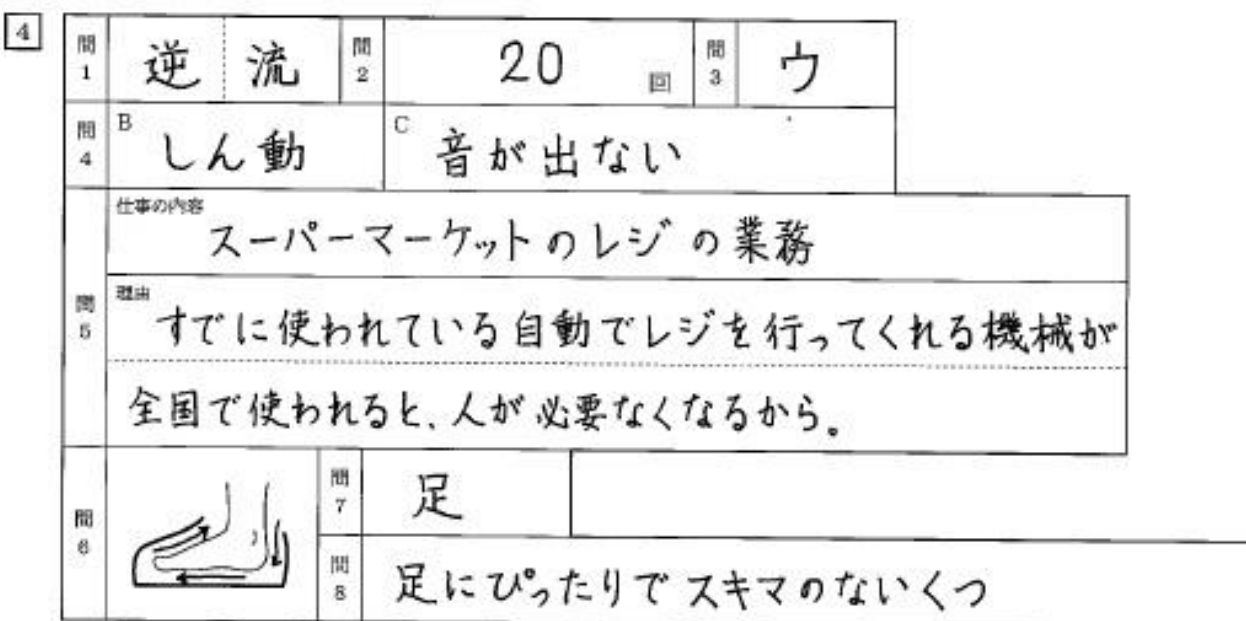 4
問1 逆流 問2 20回 問3 ウ
問4 B しん動 C 音が出ない
問5 仕事の内容 スーパーマーケットのレジの業務
理由 すでに使われている自動でレジを行ってくれる機械が
全国で使われると、人が必要なくなるから。
問6 問7 足
問8 足にぴったりでスキマのないくつ